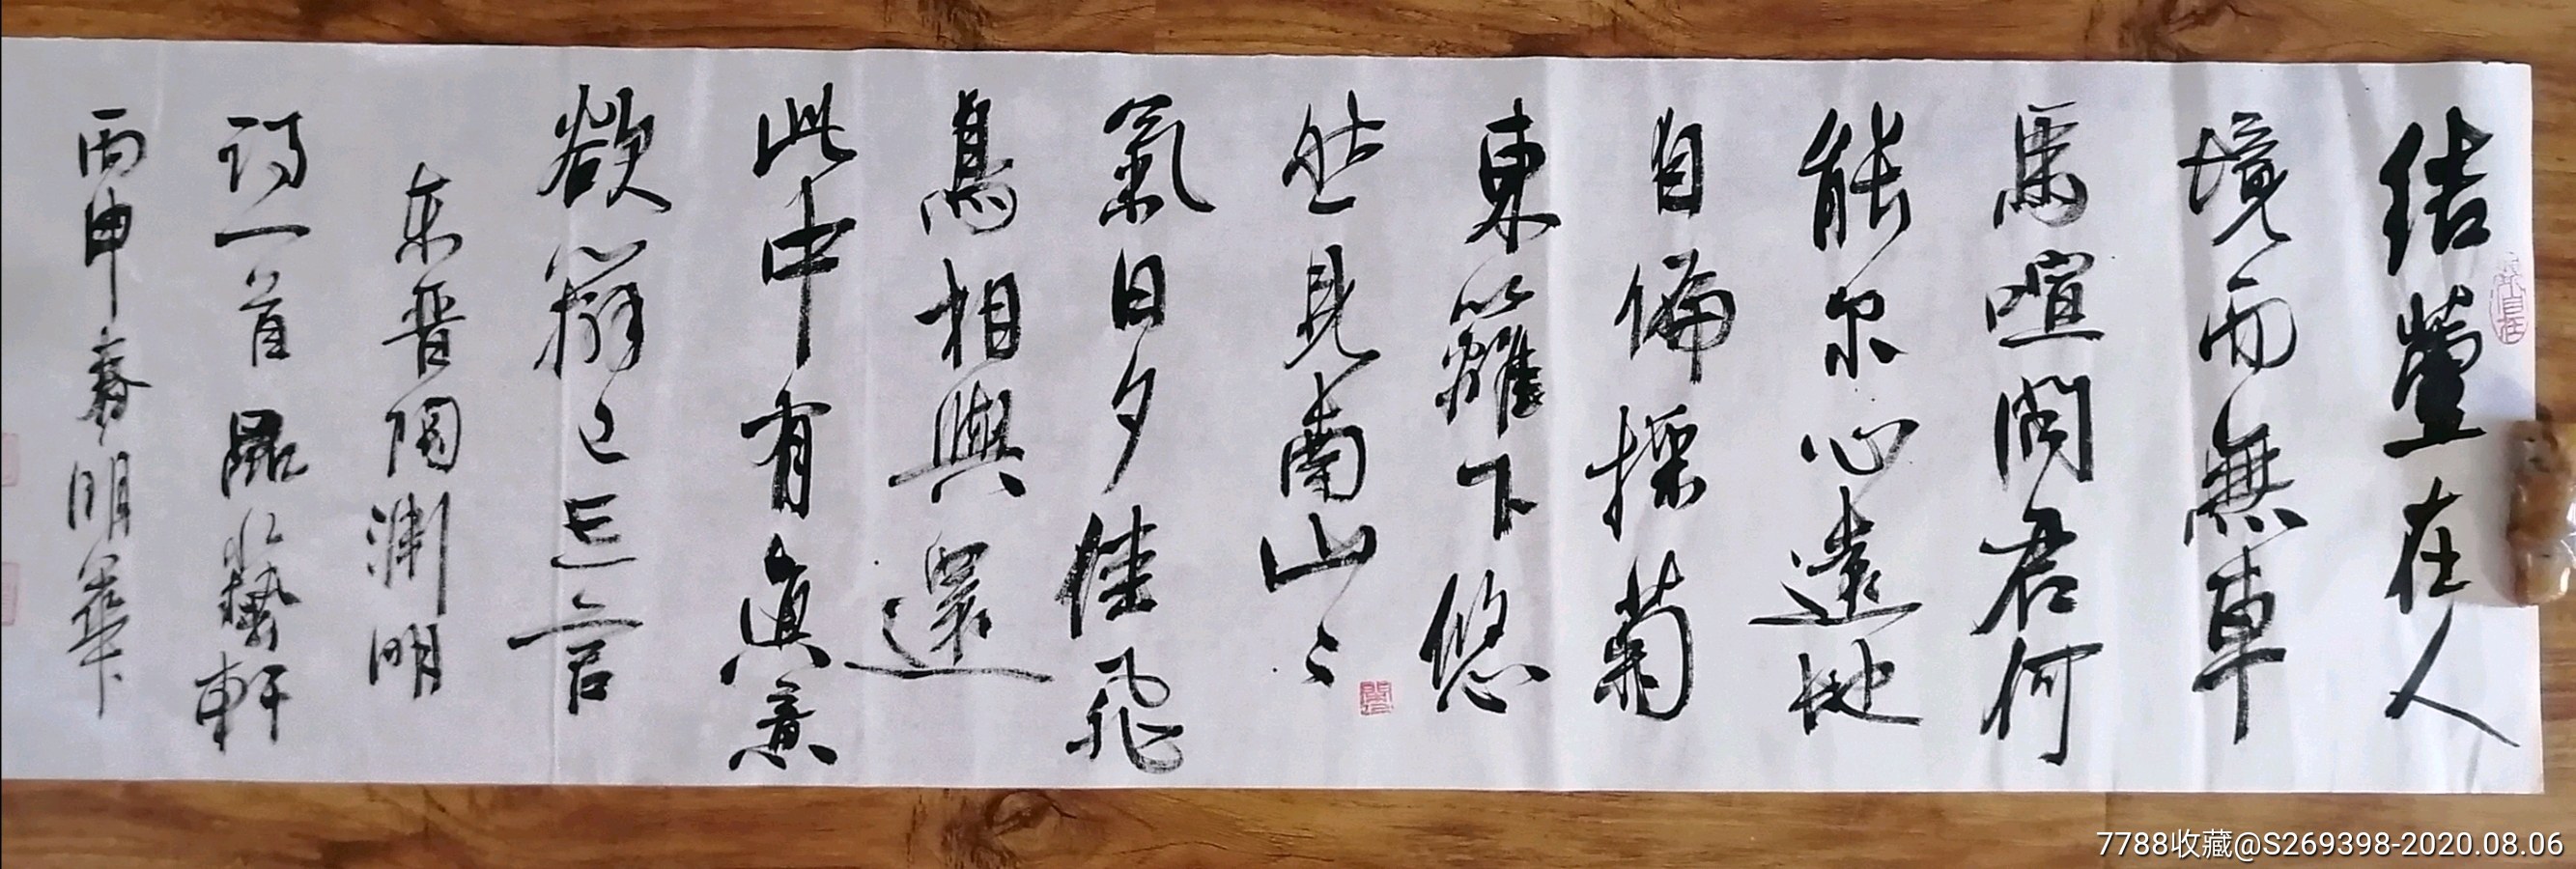 结蘆在人
境而無車
馬喧問君何
能尔心遠地
自偏採菊
東籬下悠
然見南山山
氣日夕佳飛
鳥相與還
此中有真意
欲辯已忘言
东晋陶渊明
诗一首藝軒
丙申春明
7788收藏@S269398-2020.08.06